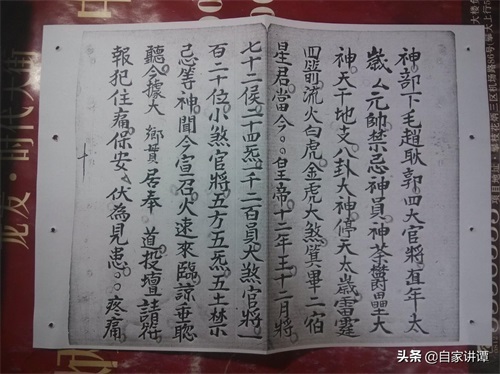 神部下毛趙耿郭四大官將值年太
歲厶元帥禁忌神員神荼欎壘大
神天干地支八卦大神停天太歲雷霆
四箭流火白虎金虎大煞箕畢二宿
星君當今。。皇帝十二年王十二月將
七十二侯二十四炁一千二百員大煞官將一
百二十位小煞官將五方五炁五土禁
忌等神聞今宣召火速來臨諒垂聦
聽今據大 鄉貫居奉 道投壇請符
報犯住痛保安乀伏為見患。。疼痛
头条 @自家讲谭